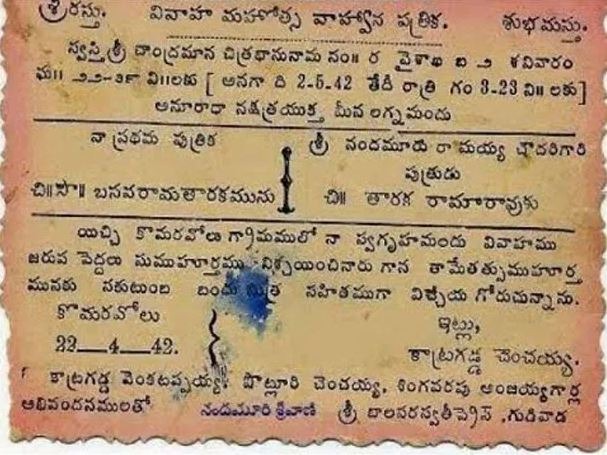 శ్రీరస్తు. వివాహ మహోత్స వాహ్వాన పత్రిక. శుభమస్తు.
స్వస్తిశ్రీ చాంద్రమాన చిత్రభానునామ సం॥ ర వైశాఖ బ ౨ శనివారం
ఘ॥ ౨౨-౩౯ వి॥లకు [ అనగా ది 2-5-42 తేదీ రాత్రి గం 3-23 ని॥ లకు]
అనూరాధా నక్షత్రయుక్త మీన లగ్నమందు
నా ప్రథమ పుత్రిక
చి॥సౌ॥ బసవరామతారకమును
శ్రీ నందమూరు రామయ్య చౌదరిగారి
పుత్రుడు
చి॥ తారక రామారావుకు
యిచ్చి కొమరవోలు గ్రామములో నా స్వగృహమందు వివాహము
జరుప పెద్దలు సుముహూర్తము నిశ్చయించినారు గాన తామేతత్సుముహూర్త
మునకు సకుటుంబ బంధు మిత్ర సహితముగా విచ్చేయ గోరుచున్నాను.
కొమరవోలు
22—4—42.
ఇట్లు,
కాట్రగడ్డ చెంచయ్య.
కాట్రగడ్డ వెంకటప్పయ్య, పొట్లూరి చెంచయ్య, శింగవరపు అంజయ్యగార్ల
అభివందనములతో నందమూరి శ్రీవాణి శ్రీ బాలసరస్వతీప్రెస్, గుడివాడ